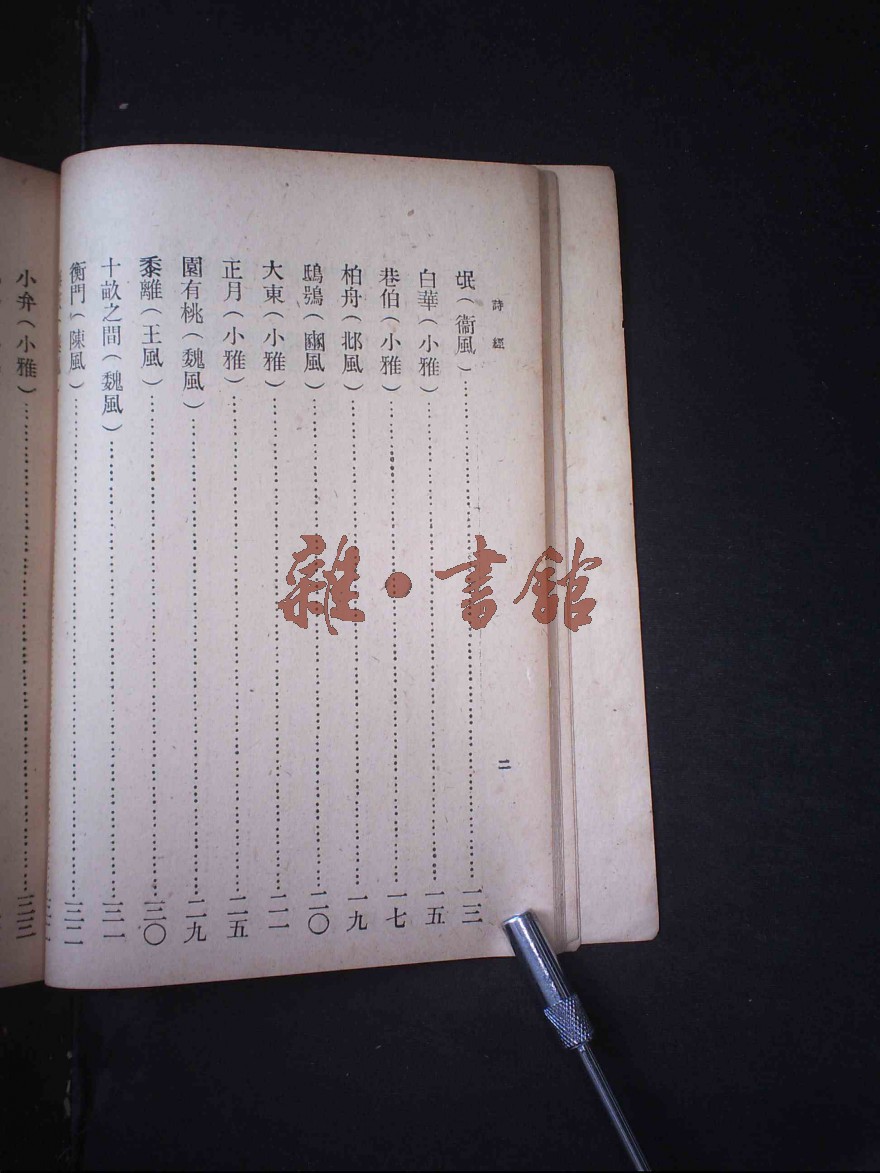 詩經
二
氓（衞風）……一三
白華（小雅）……一五
巷伯（小雅）……一七
柏舟（邶風）……一九
鴟鴞（豳風）……二〇
大東（小雅）……二一
正月（小雅）……二五
園有桃（魏風）……二九
黍離（王風）……三〇
十畝之間（魏風）……三一
衡門（陳風）……三二
小弁（小雅）……三三
雜·書館